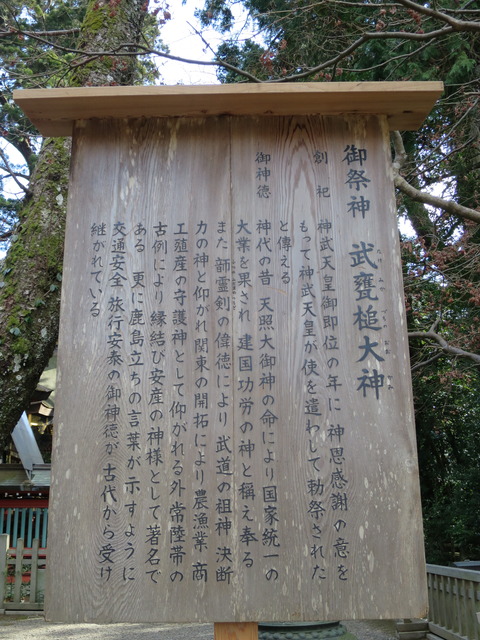 御祭神 武甕槌大神
創祀 神武天皇御即位の年に 神恩感謝の意を
もって神武天皇が使を遣わして勅祭された
と傳える
御神徳 神代の昔 天照大御神の命により国家統一の
大業を果され 建国功労の神と稱え奉る
また 韴霊剣の偉徳により 武道の祖神 決断
力の神と仰がれ関東の開拓により農漁業 商
工殖産の守護神として仰がれる外常陸帯の
古例により縁結び安産の神様として著名で
ある 更に鹿島立ちの言葉が示すように
交通安全 旅行安泰の御神徳が古代から受け
継がれている